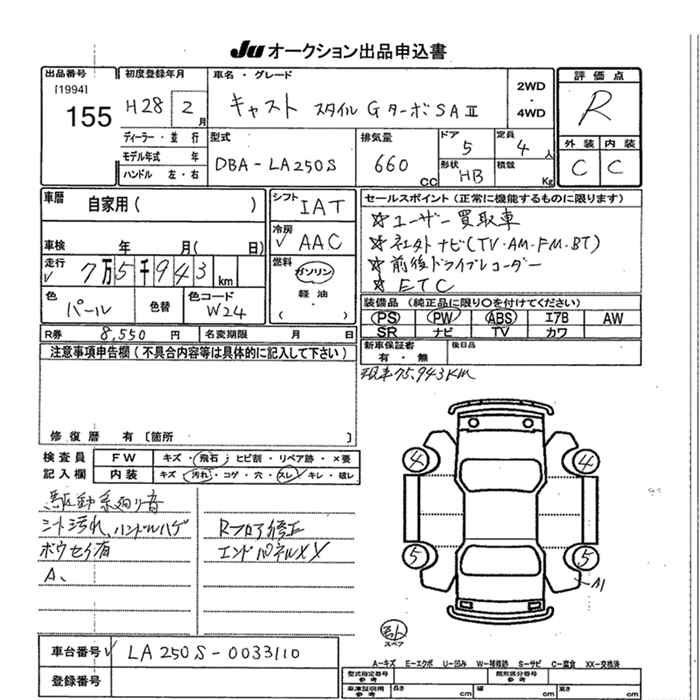 JU オークション出品申込書
出品番号 初度登録年月 車名・グレード 評価点
[1994]
155
H28 2月
キャスト スタイル G ターボ SAⅡ
2WD
・
4WD
R
ディーラー・並行
モデル年式 年
ハンドル 左・右
型式
DBA-LA250S
排気量
660 CC
ドア
5
定員
4人
形状
HB
積載
Kg
外装 内装
C C
車歴
自家用( )
シフト
IAT
車検 年 月
冷房
AAC
走行
7万5千943 km
燃料
ガソリン
軽油
( )
色
パール
色替
色コード
W24
R券 8,550円 名変期限 月 日
セールスポイント(正常に機能するものに限ります)
☆ユーザー買取車
☆ナビ(TV・AM・FM・BT)
☆前後ドライブレコーダー
☆ETC
装備品(純正品に限り○を付けてください)
PS PW ABS エアB AW
SR ナビ TV カワ
新車保証書
有・無
後日品
現車75,943KM
注意事項申告欄(不具合内容等は具体的に記入して下さい)
修復歴 有 〔箇所 〕
検査員
記入欄
FW キズ・飛石・ヒビ割・リペア跡・×要
内装 キズ・汚れ・コゲ・穴・スレ・キレ・破レ
駆動系廻り音
シート汚れ、ハンドルハゲ
ボウセイ有
A、
Rフロア修正
エンドパネルXX
4 4
5 5
A1
スペア
車台番号 LA250S-0033110
登録番号
A-キズ E-エクボ U-凹み W-補修跡 S-サビ C-腐食 XX-交換済
型式指定番号
参考
類別区分番号
参考
車庫証明用
参考
長さ cm 幅 cm 高さ cm